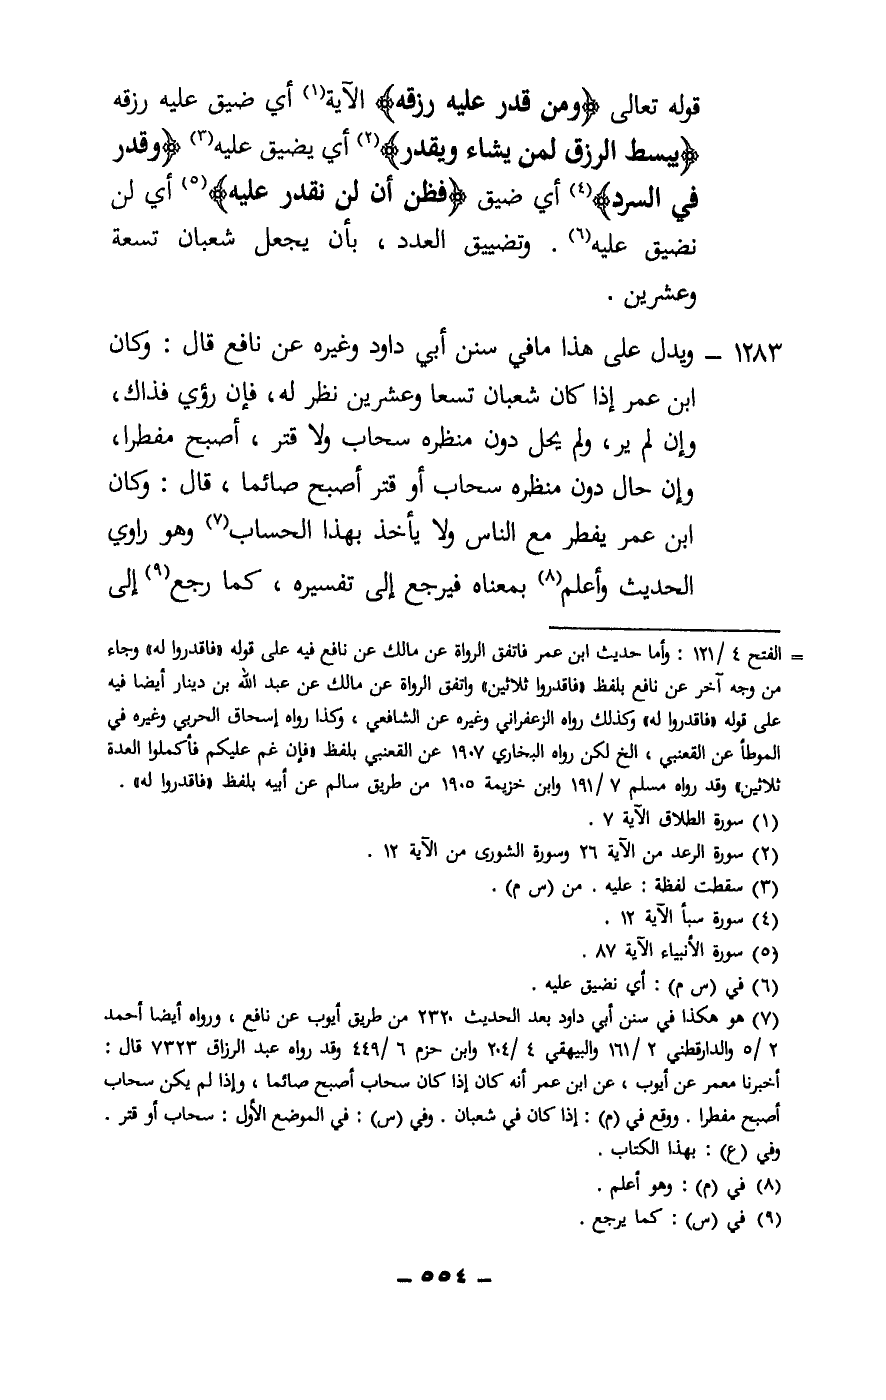 قوله تعالى ﴿ومن قدر عليه رزقه﴾ الآية(١) أي ضيق عليه رزقه
﴿يبسط الرزق لمن يشاء ويقدر﴾(٢) أي يضيق عليه(٣) ﴿وقدر
في السرد﴾(٤) أي ضيق ﴿فظن أن لن نقدر عليه﴾(٥) أي لن
نضيق عليه(٦) . وتضييق العدد ، بأن يجعل شعبان تسعة
وعشرين .
١٢٨٣ – ويدل على هذا مافي سنن أبي داود وغيره عن نافع قال : وكان
ابن عمر إذا كان شعبان تسعا وعشرين نظر له، فإن رؤي فذاك،
وإن لم ير، ولم يحل دون منظره سحاب ولا قتر ، أصبح مفطرا،
وإن حال دون منظره سحاب أو قتر أصبح صائما ، قال : وكان
ابن عمر يفطر مع الناس ولا يأخذ بهذا الحساب(٧) وهو راوي
الحديث وأعلم(٨) بمعناه فيرجع إلى تفسيره ، كما رجع(٩) إلى
= الفتح ٤ /١٢١ : وأما حديث ابن عمر فاتفق الرواة عن مالك عن نافع فيه على قوله «فاقدروا له» وجاء
من وجه آخر عن نافع بلفظ «فاقدروا ثلاثين» واتفق الرواة عن مالك عن عبد الله بن دينار أيضا فيه
على قوله «فاقدروا له» وكذلك رواه الزعفراني وغيره عن الشافعي ، وكذا رواه إسحاق الحربي وغيره في
الموطأ عن القعنبي ، الخ لكن رواه البخاري ١٩٠٧ عن القعنبي بلفظ «فإن غم عليكم فأكملوا العدة
ثلاثين» وقد رواه مسلم ٧ /١٩١ وابن خزيمة ١٩٠٥ من طريق سالم عن أبيه بلفظ «فاقدروا له» .
(١) سورة الطلاق الآية ٧ .
(٢) سورة الرعد من الآية ٢٦ وسورة الشورى من الآية ١٢ .
(٣) سقطت لفظة : عليه . من (س م) .
(٤) سورة سبأ الآية ١٢ .
(٥) سورة الأنبياء الآية ٨٧ .
(٦) في (س م) : أي نضيق عليه .
(٧) هو هكذا في سنن أبي داود بعد الحديث ٢٣٢٠ من طريق أيوب عن نافع ، ورواه أيضا أحمد
٢ /٥ والدارقطني ٢ /١٦١ والبيهقي ٤ /٢٠٤ وابن حزم ٦ /٤٤٩ وقد رواه عبد الرزاق ٧٣٢٣ قال :
أخبرنا معمر عن أيوب ، عن ابن عمر أنه كان إذا كان سحاب أصبح صائما ، وإذا لم يكن سحاب
أصبح مفطرا . ووقع في (م) : إذا كان في شعبان . وفي (س) : في الموضع الأول : سحاب أو قتر .
وفي (ع) : بهذا الكتاب .
(٨) في (م) : وهو أعلم .
(٩) في (س) : كما يرجع .
– ٥٥٤ –